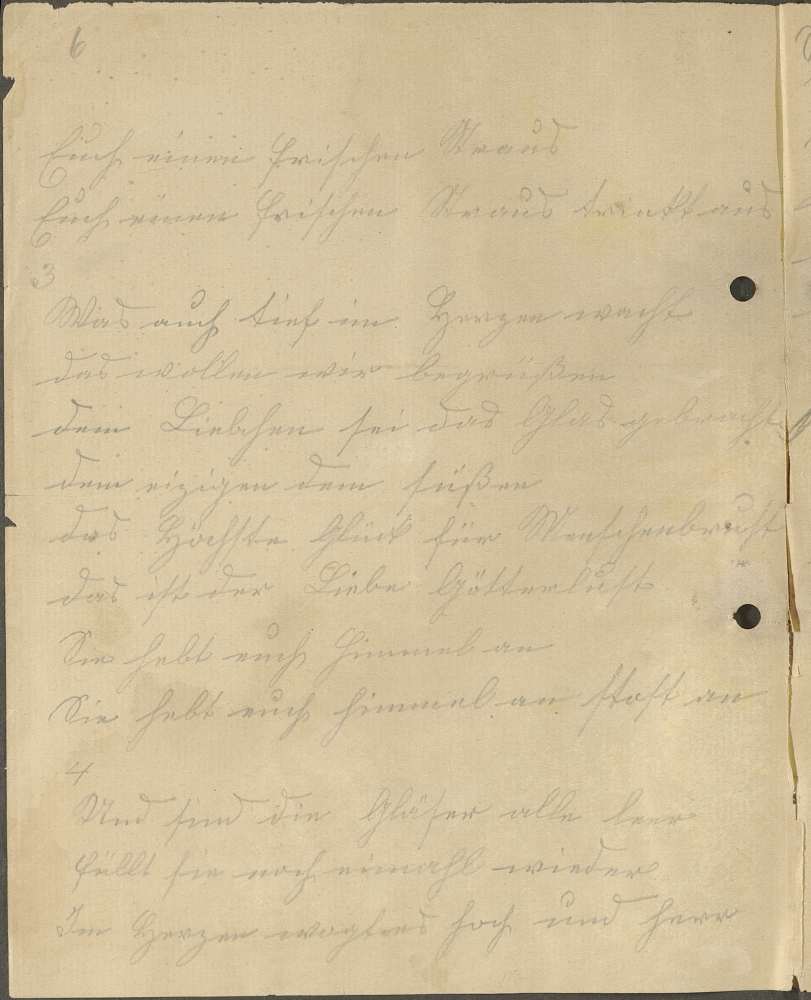 6
Euch einen frischen Straus
Euch einen frischen Straus trinkt aus
3
Was auch tief im Herzen wacht
das wollen wir begrüßen
dem Liebchen sei das Glas gebracht
dem eizigen dem süßen
das Höchste Glück für Menschenbrust
das ist der Liebe Götterlust
Sie hebt euch himmel an
Sie hebt euch himmel an stost an
4
Und sind die Gläser alle leer
füllt sie noch eimahl wieder
Im Herzen wogt es hoch und herr